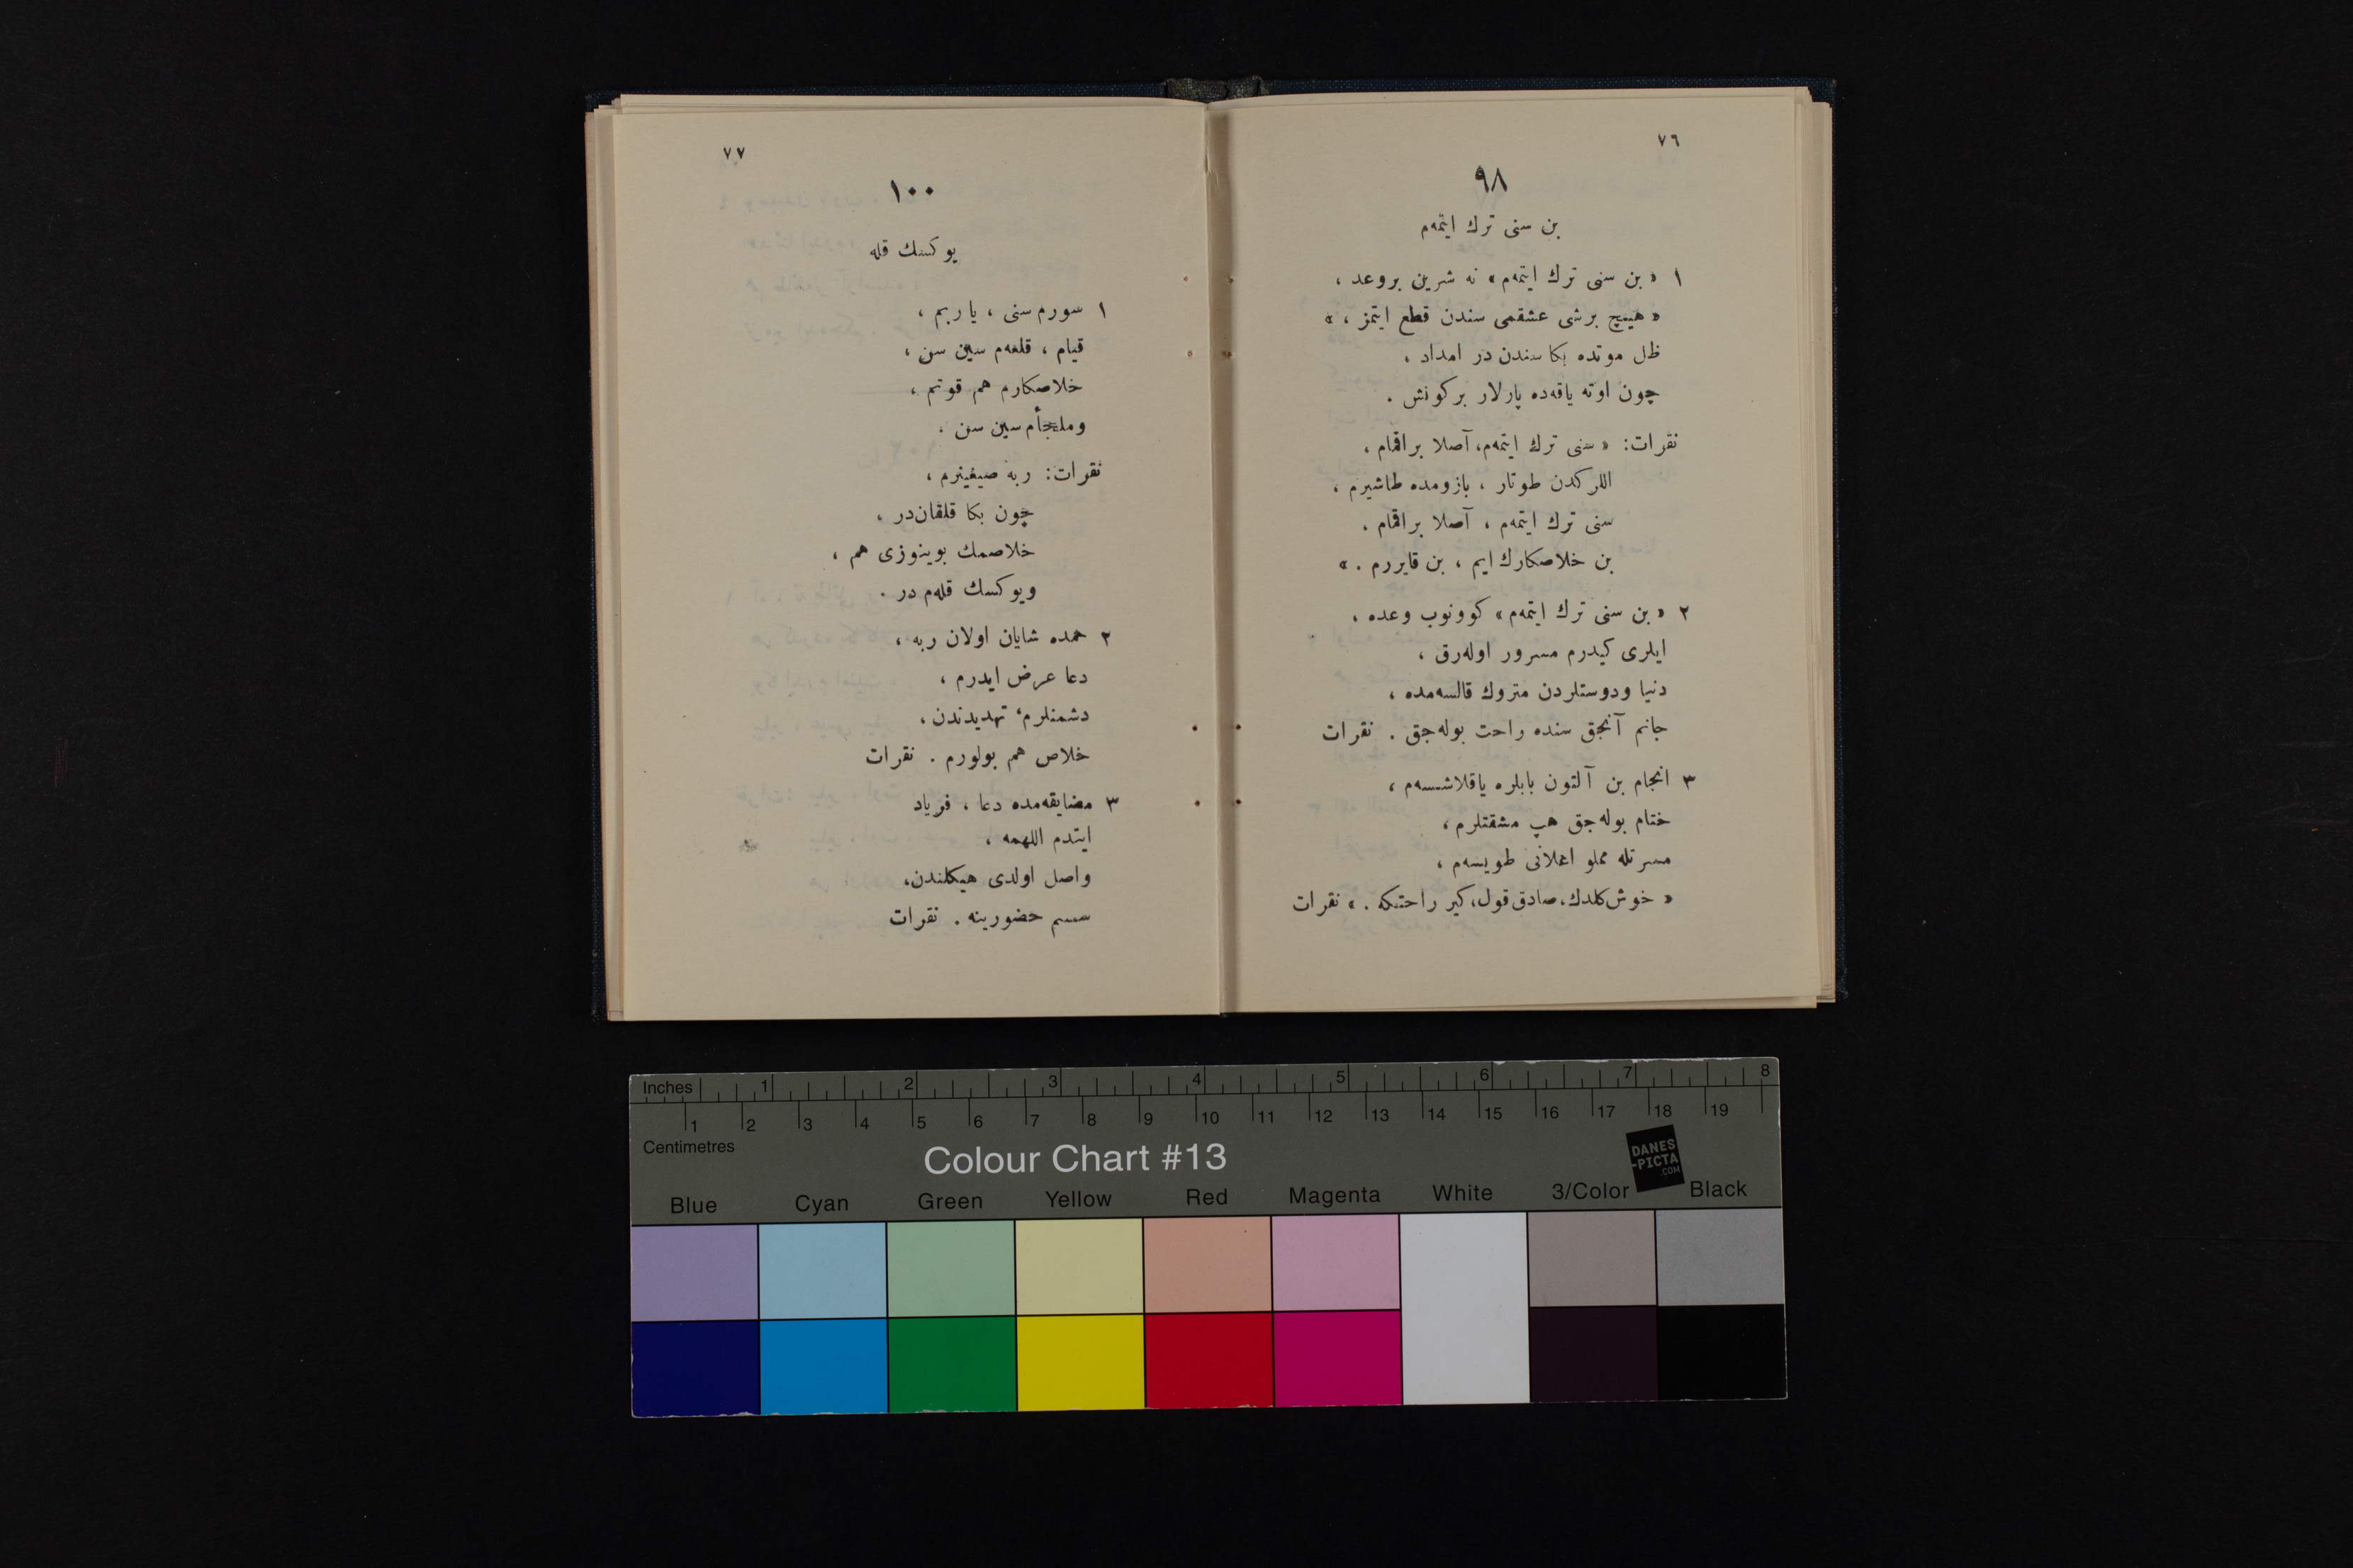 ٧٦
٩٨
بن سنی ترك ایتمەم
١ « بن سنی ترك ایتمەم » نه شرین بروعد ،
« هیچ برشی عشقمی سندن قطع ایتمز ، »
ظل موتده بكا سندن در امداد ،
چون اوته یاقەده پارلار بركونش .
نقرات: « سنی ترك ایتمەم، آصلا براقمام ،
اللركدن طوتار ، بازومده طاشیرم ،
سنی ترك ایتمەم ، آصلا براقمام .
بن خلاصكارك ایم ، بن قایررم . »
٢ « بن سنی ترك ایتمەم » كوونوب وعده ،
ایلری كیدرم مسرور اولەرق ،
دنیا ودوستلردن متروك قالسەمده ،
جانم آنجق سنده راحت بولەجق . نقرات
٣ انجام بن آلتون بابلره یاقلاشسەم ،
ختام بولەجق هپ مشقتلرم ،
مسرتله مملو اعلانی طویسەم ،
« خوش كلدك، صادق قول، كیر راحتكه . » نقرات
٧٧
١٠٠
یوكسك قله
١ سورم سنی ، یا ربم ،
قیام ، قلعەم سین سن ،
خلاصكارم هم قوتم ،
وملجأم سین سن .
نقرات: ربه صیغینرم ،
چون بكا قلقان در ،
خلاصمك بوینوزی هم ،
ویوكسك قلەم در .
٢ حمده شایان اولان ربه ،
دعا عرض ایدرم ،
دشمنلرم تهدیدندن ،
خلاص هم بولورم . نقرات
٣ مضایقەمده دعا ، فریاد
ایتدم اللهمه ،
واصل اولدی هیكلندن،
سسم حضورینه . نقرات
Inches 1 2 3 4 5 6 7 8
1 2 3 4 5 6 7 8 9 10 11 12 13 14 15 16 17 18 19
Centimetres
Colour Chart #13
DANES
-PICTA
.COM
Blue Cyan Green Yellow Red Magenta White 3/Color Black